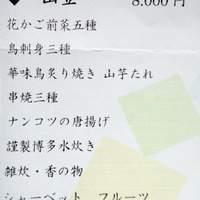 8.000円
花かご前菜五種
鳥刺身三種
華味鳥炙り焼き 山芋たれ
串焼三種
ナンコツの唐揚げ
謹製博多水炊き
雑炊・香の物
シャーベット フルーツ